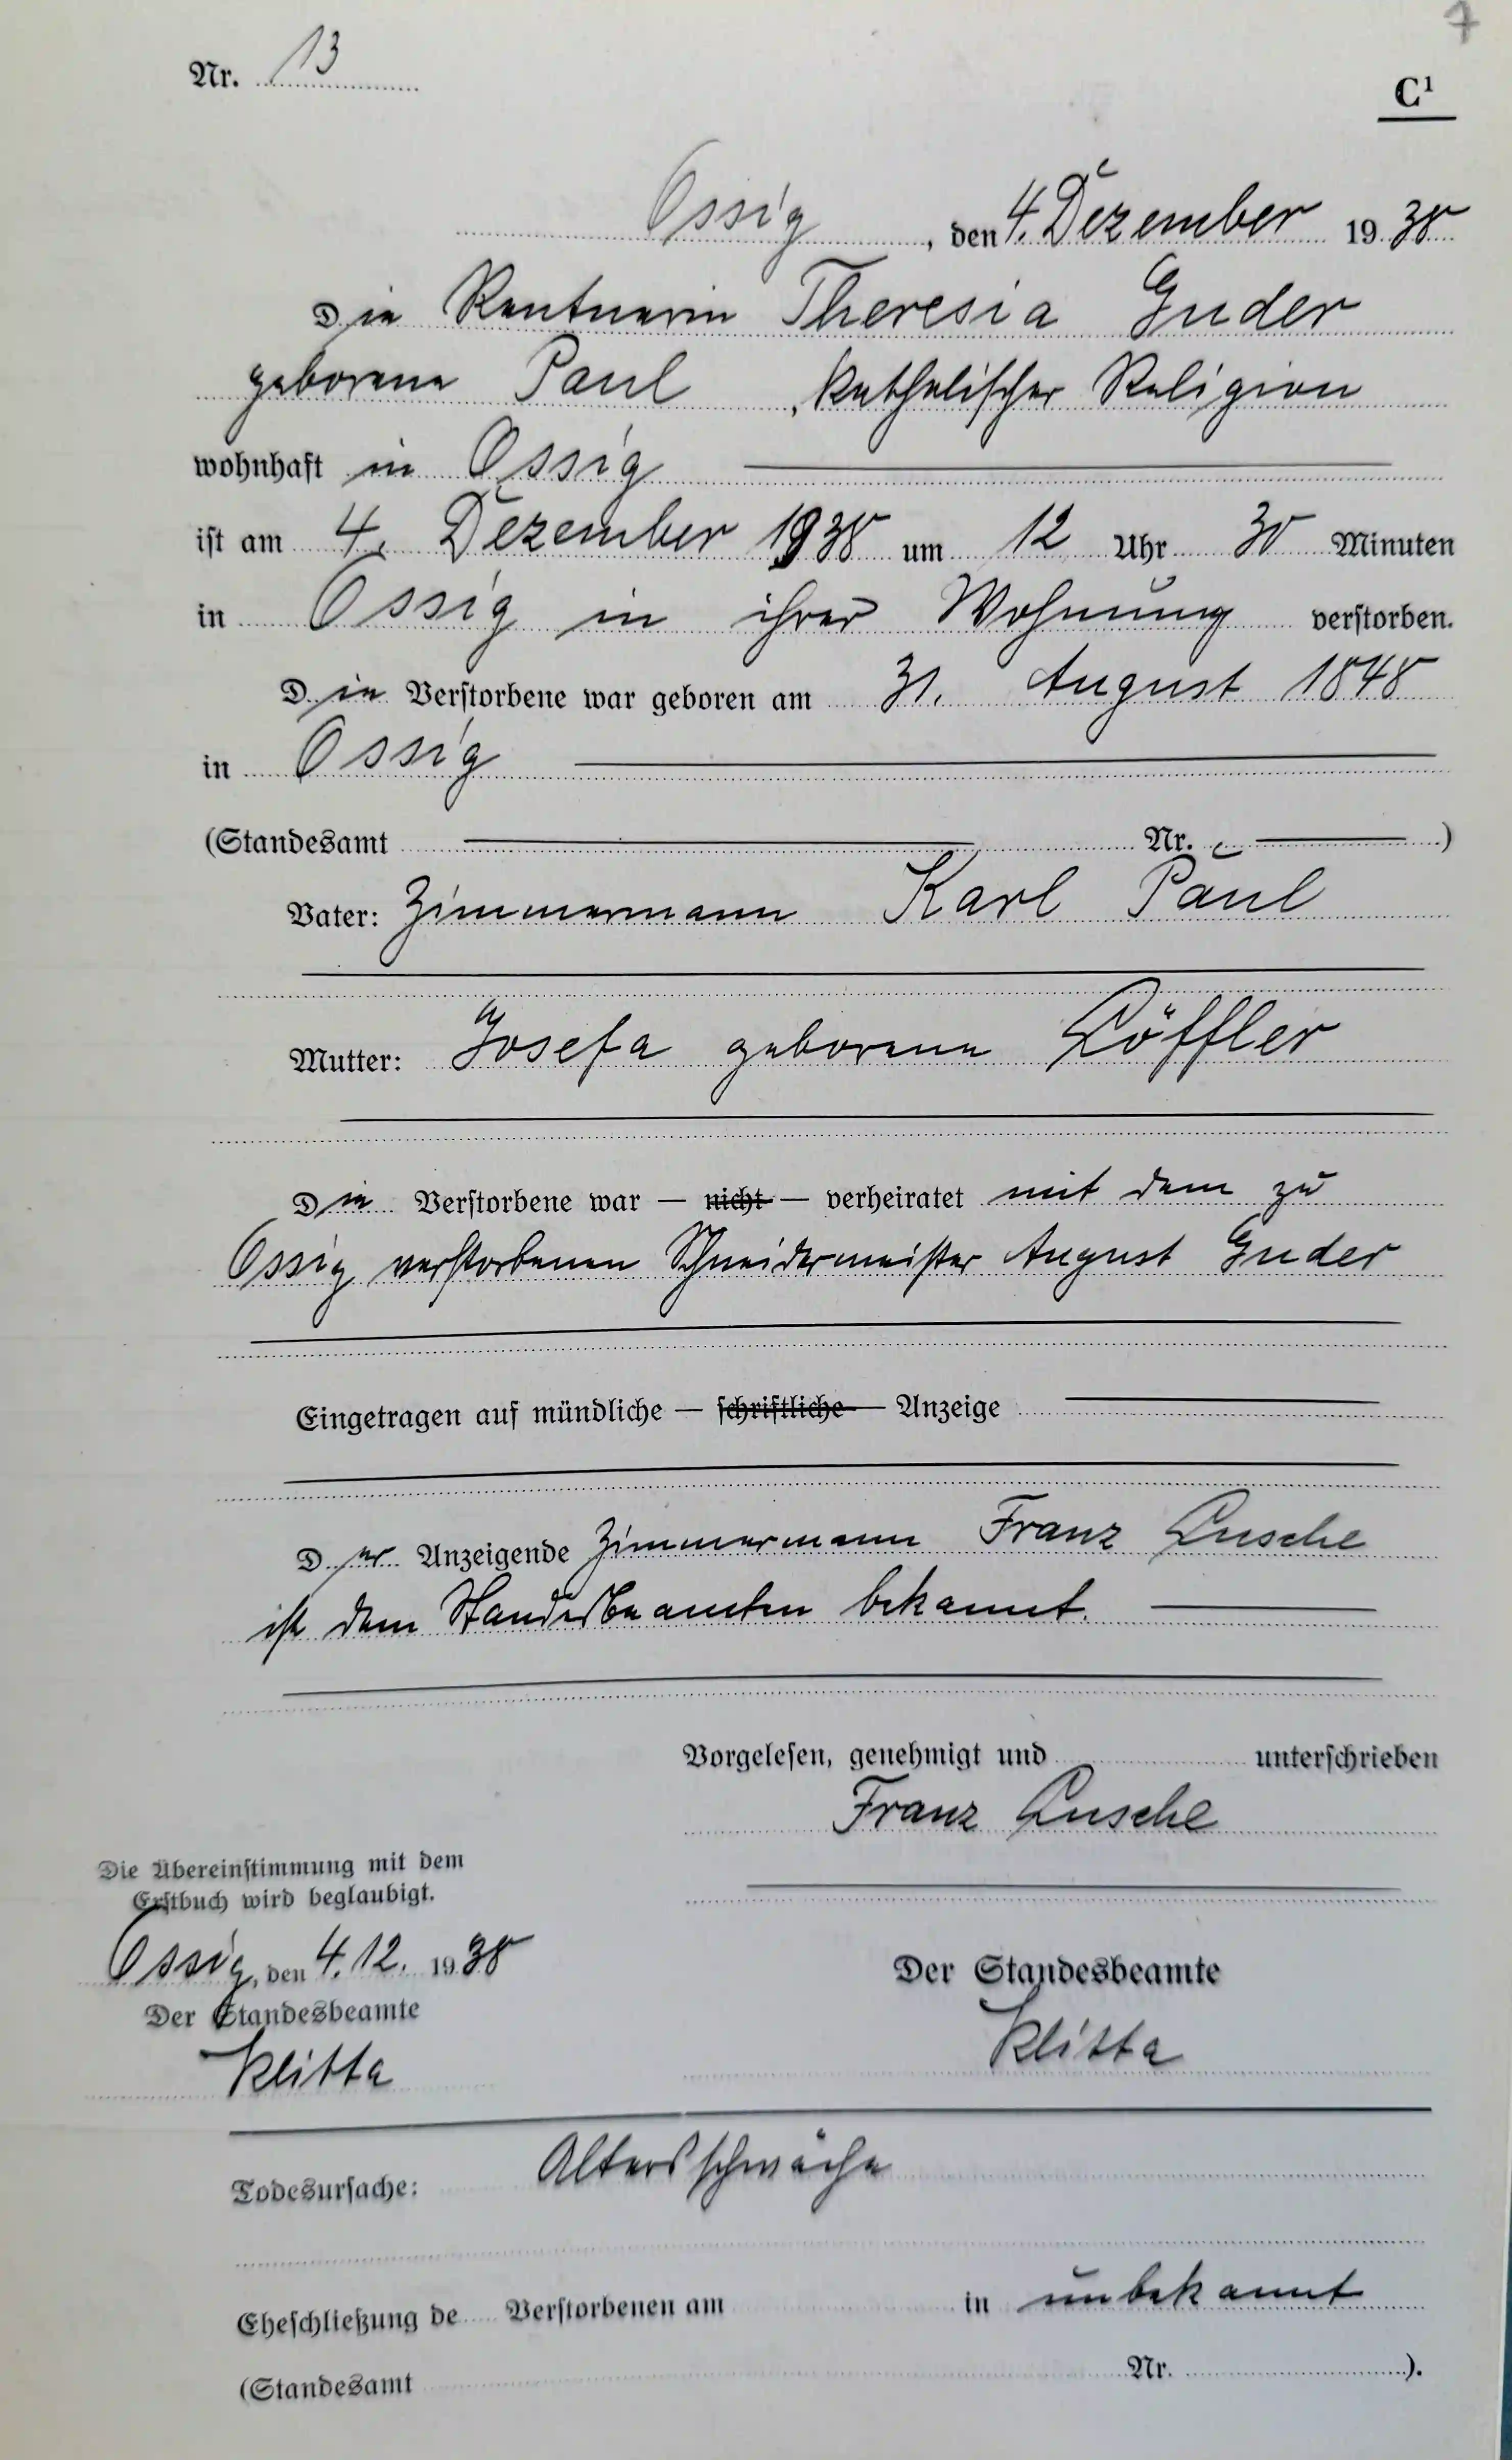 7
Nr. 13
C¹
Ossig, den 4. Dezember 1938
Die Rentnerin Theresia Guder
geborene Paul, katholischer Religion
wohnhaft in Ossig
ist am 4. Dezember 1938 um 12 Uhr 30 Minuten
in Ossig in ihrer Wohnung verstorben.
Die Verstorbene war geboren am 31. August 1848
in Ossig
(Standesamt Nr. )
Vater: Zimmermann Karl Paul
Mutter: Josefa geborene Löffler
Die Verstorbene war — nicht — verheiratet mit dem zu
Ossig verstorbenen Schneidermeister August Guder
Eingetragen auf mündliche — schriftliche — Anzeige
Der Anzeigende Zimmermann Franz Lusche
ist dem Standesbeamten bekannt.
Vorgelesen, genehmigt und unterschrieben
Franz Lusche
Die Übereinstimmung mit dem
Erstbuch wird beglaubigt.
Ossig, den 4.12. 1938
Der Standesbeamte
Klitta
Der Standesbeamte
Klitta
Todesursache: Altersschwäche
Eheschließung de Verstorbenen am in unbekannt
(Standesamt Nr. ).